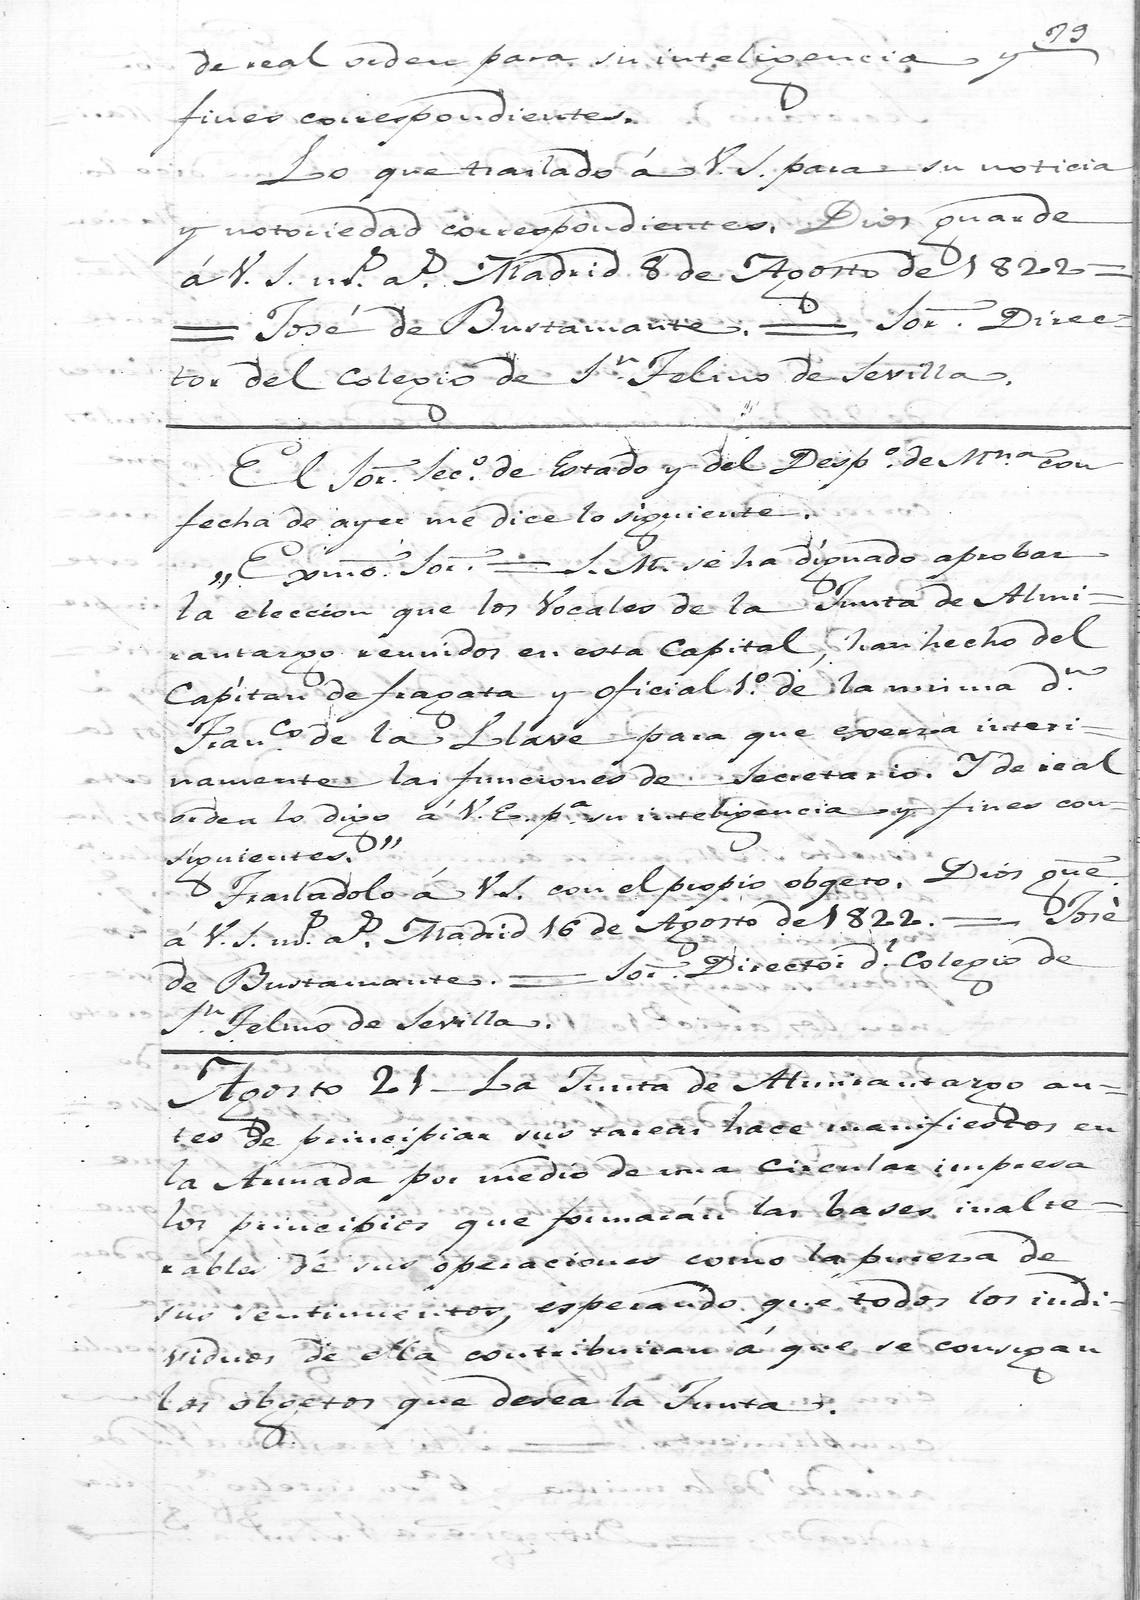 79
de real orden para su inteligencia y
fines correspondientes.
Lo que traslado á V. S. para su noticia
y notoriedad correspondientes. Dios guarde
á V. S. ms. as. Madrid 8 de Agosto de 1822=
= José de Bustamante. = Sor. Direc=
tor del Colegio de Sn. Telmo de Sevilla.
El Sor. Seco. de Estado y del Despo. de Mna. con
fecha de ayer me dice lo siguiente.
„Exmo. Sor. = S. M. se ha dignado aprobar
la eleccion que los Vocales de la Junta de Almi=
rantazgo reunidos en esta Capital, han hecho del
Capitan de fragata y oficial 1o. de la misma dn.
Franco. de la Llave para que exerza interi=
namente las funciones de Secretario. Y de real
orden lo digo á V. E. pa. su inteligencia y fines con-
siguientes."
Trasladolo á V. S. con el propio obgeto. Dios gue.
á V. S. ms. as. Madrid 16 de Agosto de 1822. = José
de Bustamante. = Sor. Director dl. Colegio de
Sn. Telmo de Sevilla.
Agosto 21 - La Junta de Almirantazgo an=
tes de principiar sus tareas hace manifiestos en
la Armada por medio de una circular impresa
los principios que formarán las bases inalte=
rables de sus operaciones como la pureza de
sus sentimientos, esperando que todos los indi-
viduos de ella contribuiran á que se consigan
los obgetos que desea la Junta.